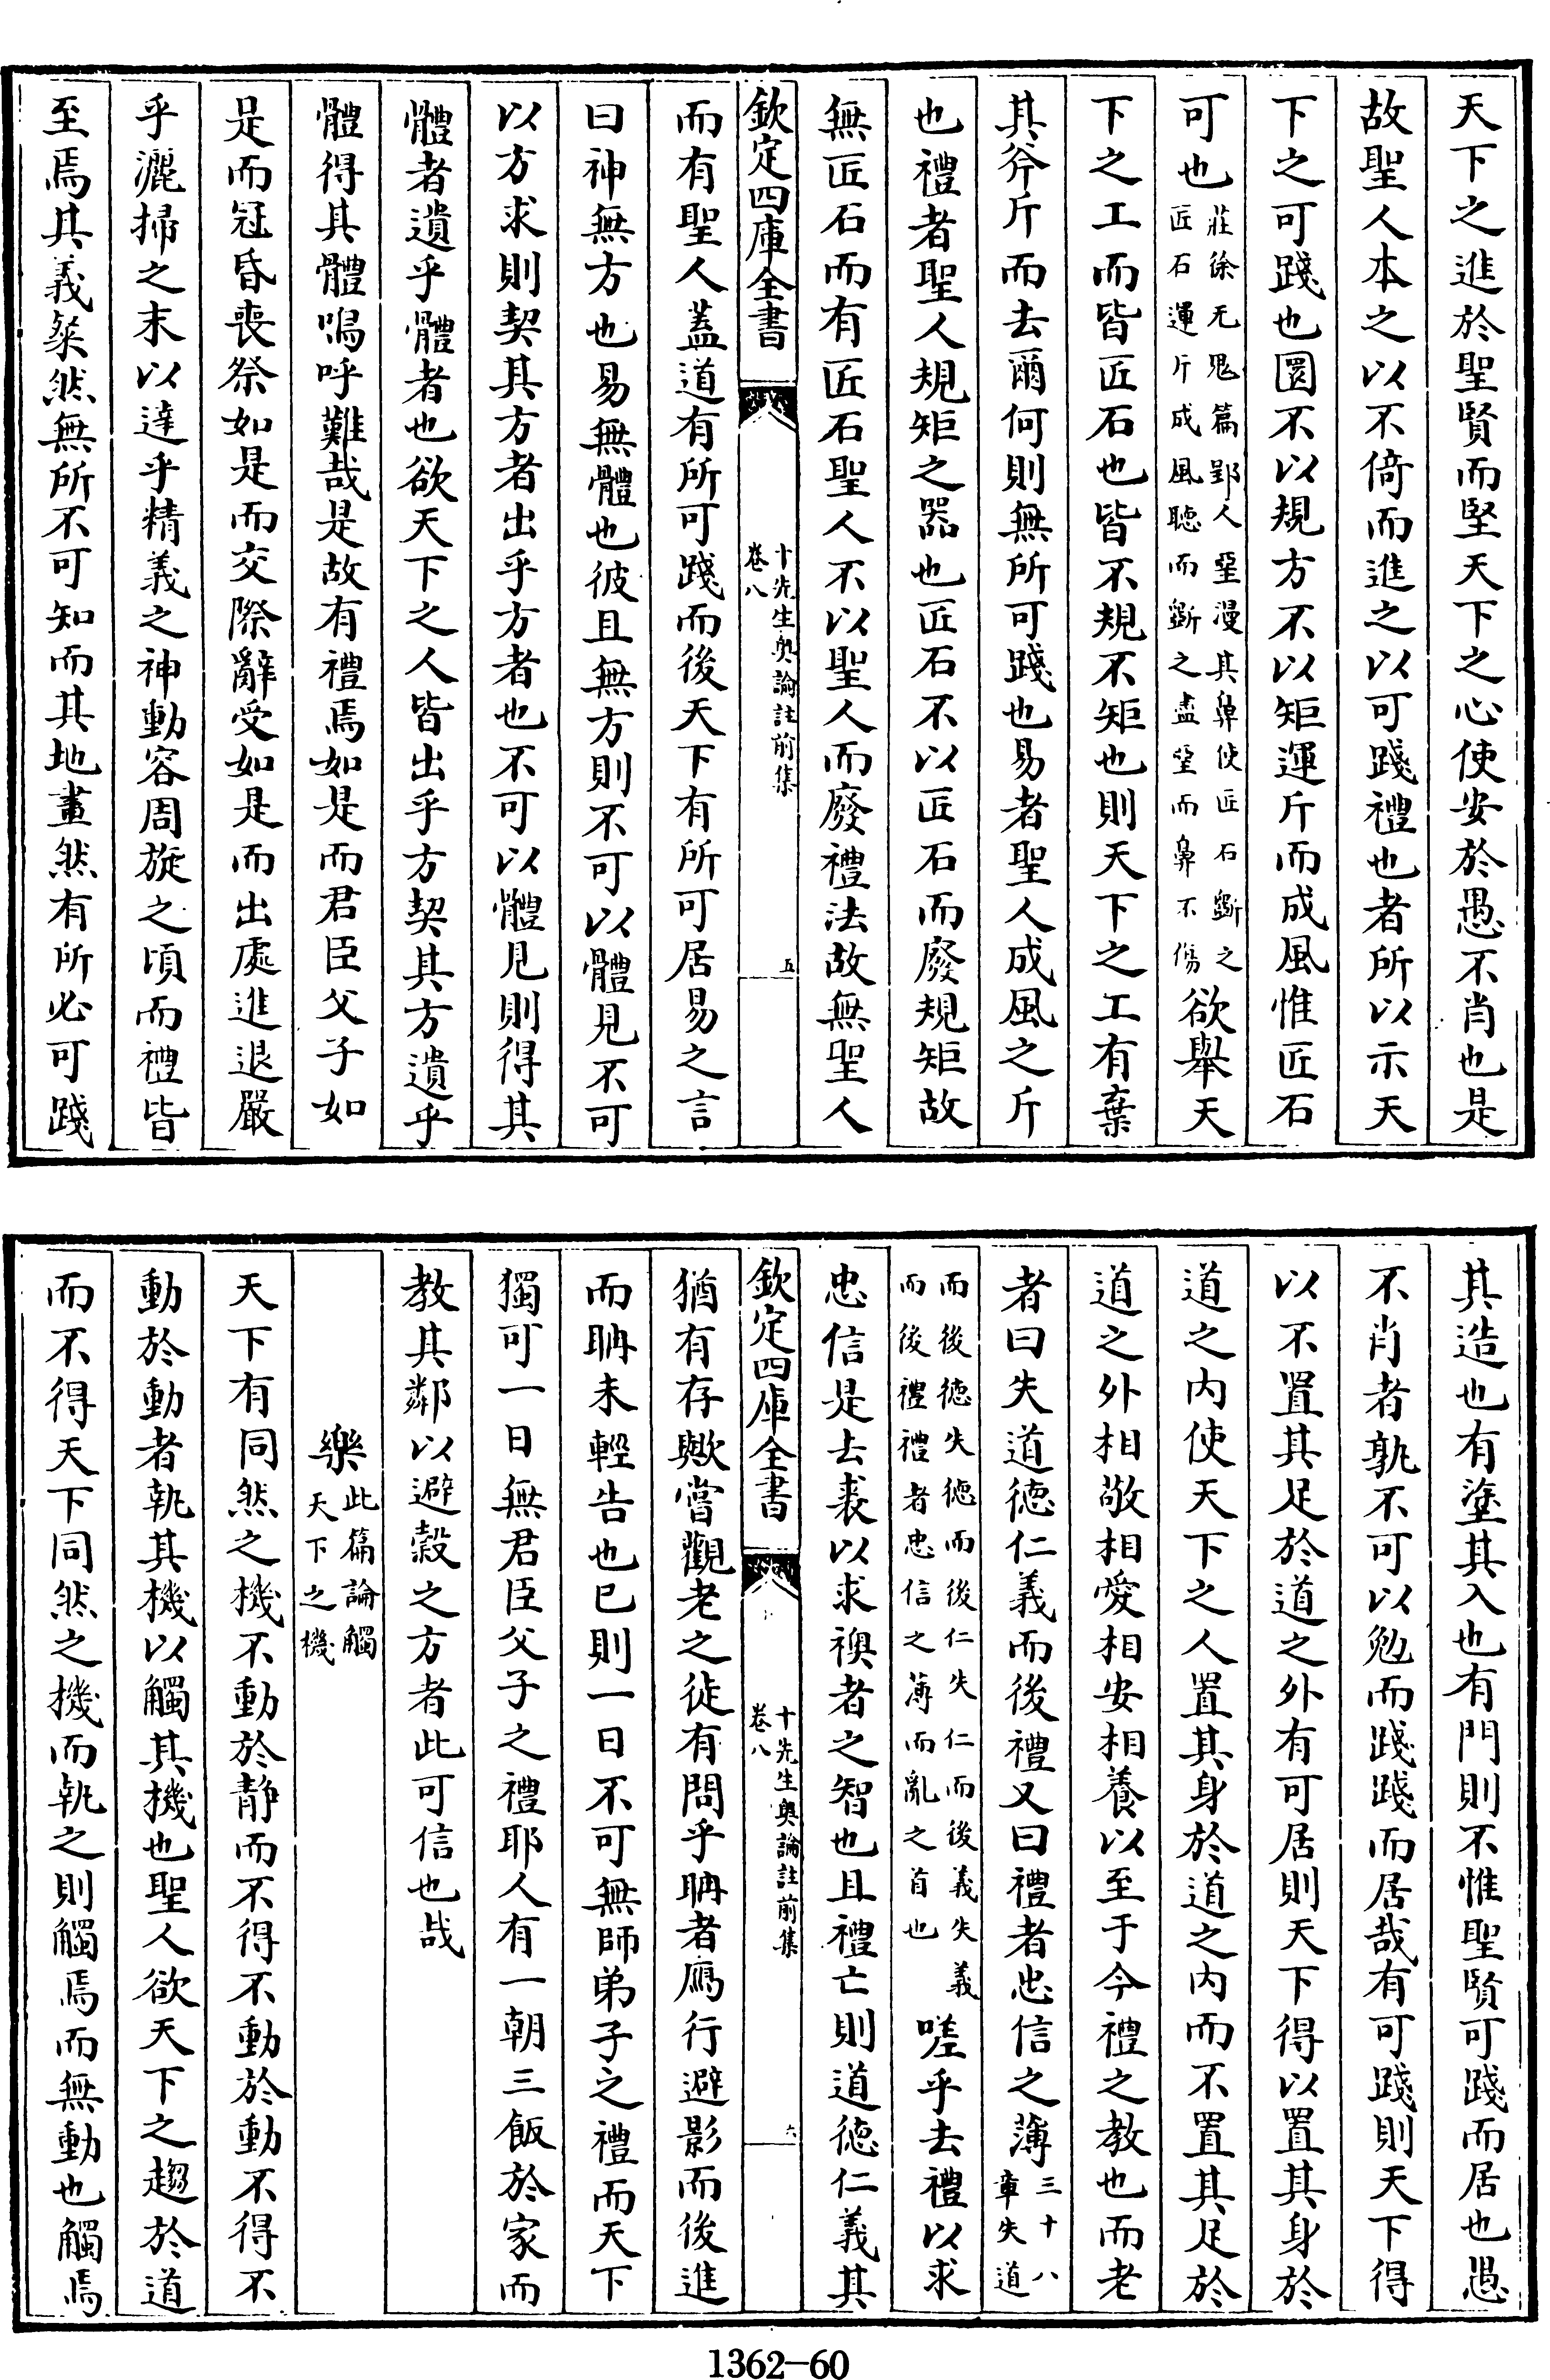 天下之進於聖賢而堅天下之心使安於愚不肖也是
故聖人本之以不倚而進之以可踐禮也者所以示天
下之可踐也圜不以規方不以矩運斤而成風惟匠石
可也莊徐无鬼篇郢人堊漫其鼻使匠石斲之匠石運斤成風聽而斲之盡堊而鼻不傷欲舉天
下之工而皆匠石也皆不規不矩也則天下之工有棄
其斧斤而去爾何則無所可踐也易者聖人成風之斤
也禮者聖人規矩之器也匠石不以匠石而廢規矩故
無匠石而有匠石聖人不以聖人而廢禮法故無聖人
欽定四庫全書
十先生奧論註前集
卷八
五
而有聖人蓋道有所可踐而後天下有所可居易之言
曰神無方也易無體也彼且無方則不可以體見不可
以方求則契其方者出乎方者也不可以體見則得其
體者遺乎體者也欲天下之人皆出乎方契其方遺乎
體得其體嗚呼難哉是故有禮焉如是而君臣父子如
是而冠昏喪祭如是而交際辭受如是而出處進退嚴
乎灑掃之末以達乎精義之神動容周旋之頃而禮皆
至焉其義粲然無所不可知而其地畫然有所必可踐
其造也有塗其入也有門則不惟聖賢可踐而居也愚
不肖者孰不可以勉而踐踐而居哉有可踐則天下得
以不置其足於道之外有可居則天下得以置其身於
道之內使天下之人置其身於道之內而不置其足於
道之外相敬相愛相安相養以至于今禮之教也而老
者曰失道德仁義而後禮又曰禮者忠信之薄三十八章失道
而後德失德而後仁失仁而後義失義而後禮禮者忠信之薄而亂之首也嗟乎去禮以求
忠信是去裘以求襖者之智也且禮亡則道德仁義其
欽定四庫全書
十先生奧論註前集
卷八
六
猶有存歟嘗觀老之徒有問乎聃者鴈行避影而後進
而聃未輕告也已則一日不可無師弟子之禮而天下
獨可一日無君臣父子之禮耶人有一朝三飯於家而
教其鄰以避穀之方者此可信也哉
樂此篇論觸天下之機
天下有同然之機不動於静而不得不動於動不得不
動於動者執其機以觸其機也聖人欲天下之趨於道
而不得天下同然之機而執之則觸焉而無動也觸焉
1362—60